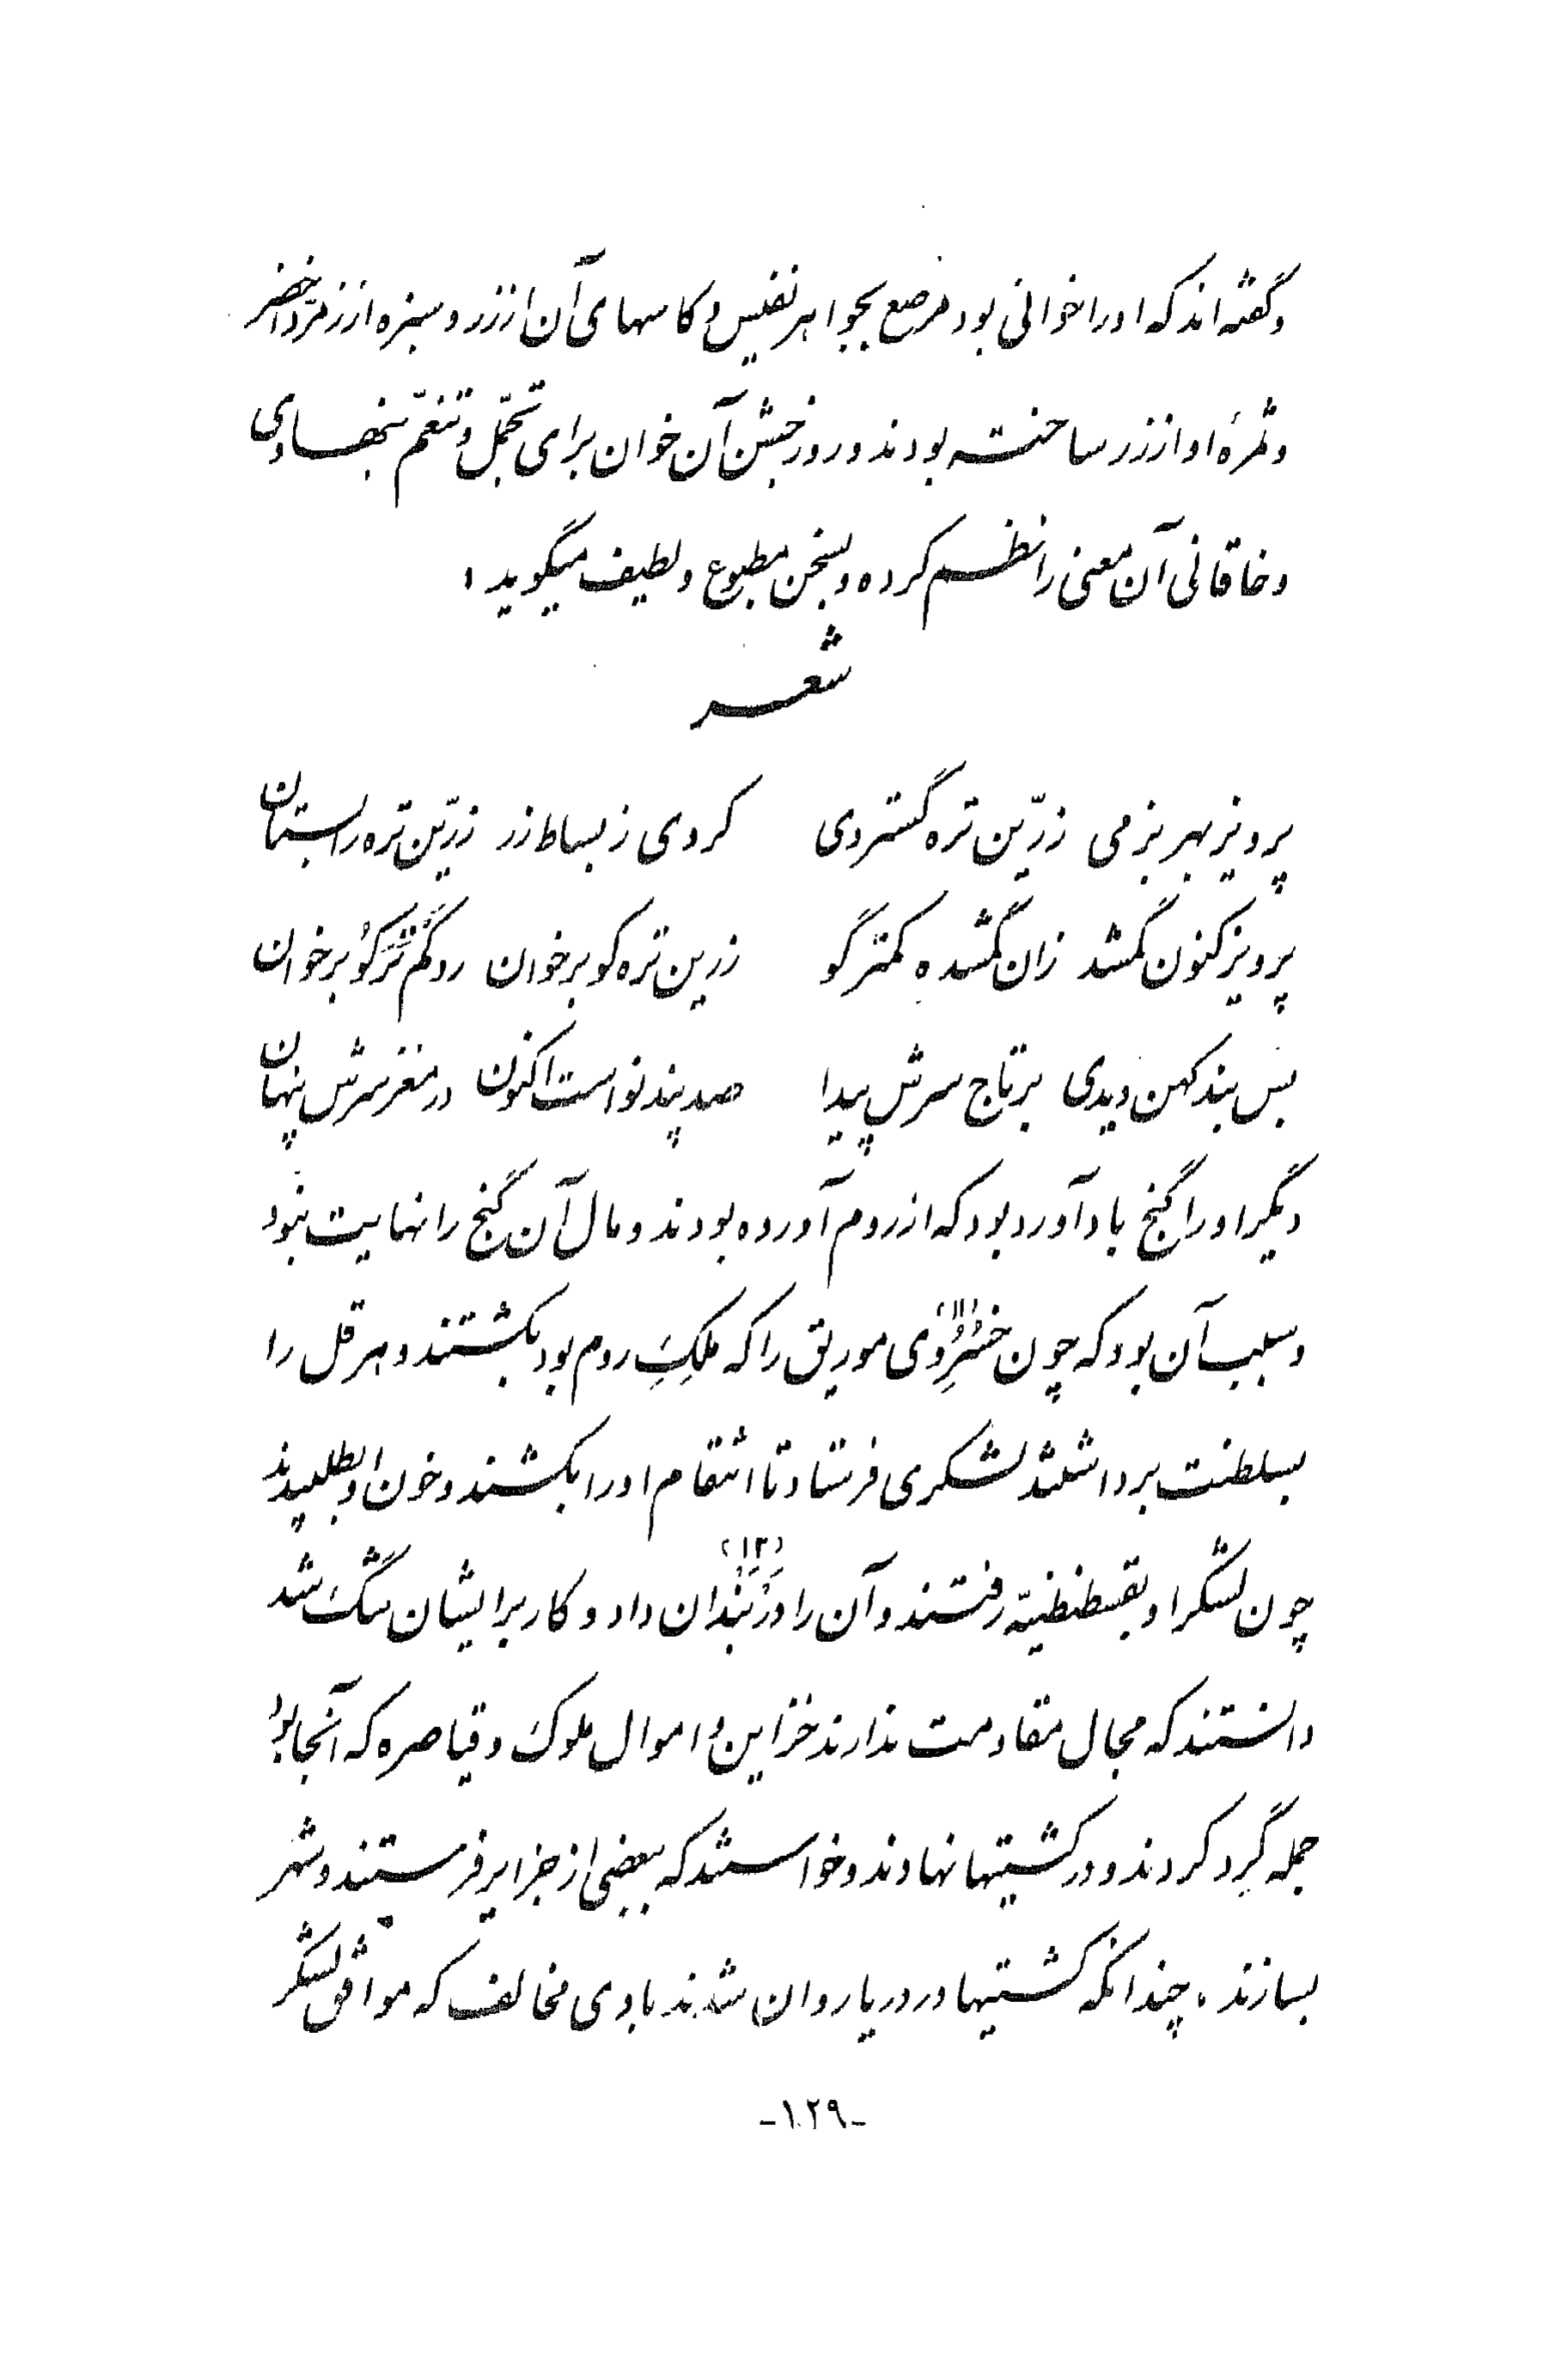 و گفته‌اند که او را خوانی بود مرصع بجواهر نفیس و کاسهای آن از زر و سبزه از زمرّد اخضر
و ثمرهٔ او از زر ساخته بودند و روز جشن آن خوان برای تجمّل و تنعّم بنهادی
و خاقانی آن معنی را نظم کرده و بسخن مطبوع و لطیف میگوید:
شعر
پرویز بهر بزمی زرّین تره گستردی کردی ز بساط زر زرّین تره را بستان
پرویز کنون گمشد زان گمشده کمتر گو زرین تره کو برخوان رو کم ترکوا برخوان
بس بند کهن دیدی بر تاج سرش پیدا صد پند نو است اکنون در مغز سرش پنهان
دیگر او را گنج بادآورد بود که از روم آورده بودند و مال آن گنج را نهایت نبود
و سبب آن بود که چون خسروی (۱۱) موریق را که ملکِ روم بود بکشتند و هرقل را
بسلطنت برداشتند لشکری فرستاد تا انتقام او را بکشند و خون او بطلبیدند
چون لشکر او بقسطنطنیّه رفتند و آن را در بندان (۱۲) داد و کار بر ایشان تنگ شد
دانستند که مجال مقاومت ندارند خزاین و اموال ملوک و قیاصره که آنجا بود
جمله گِرد کردند و در کشتیها نهادند و خواستند که ببعضی از جزایر فرستند و شهر
بسازند، چندانکه کشتیها در دریا روان شدند بادی مخالف که موافق لشکر
-۱۲۹-